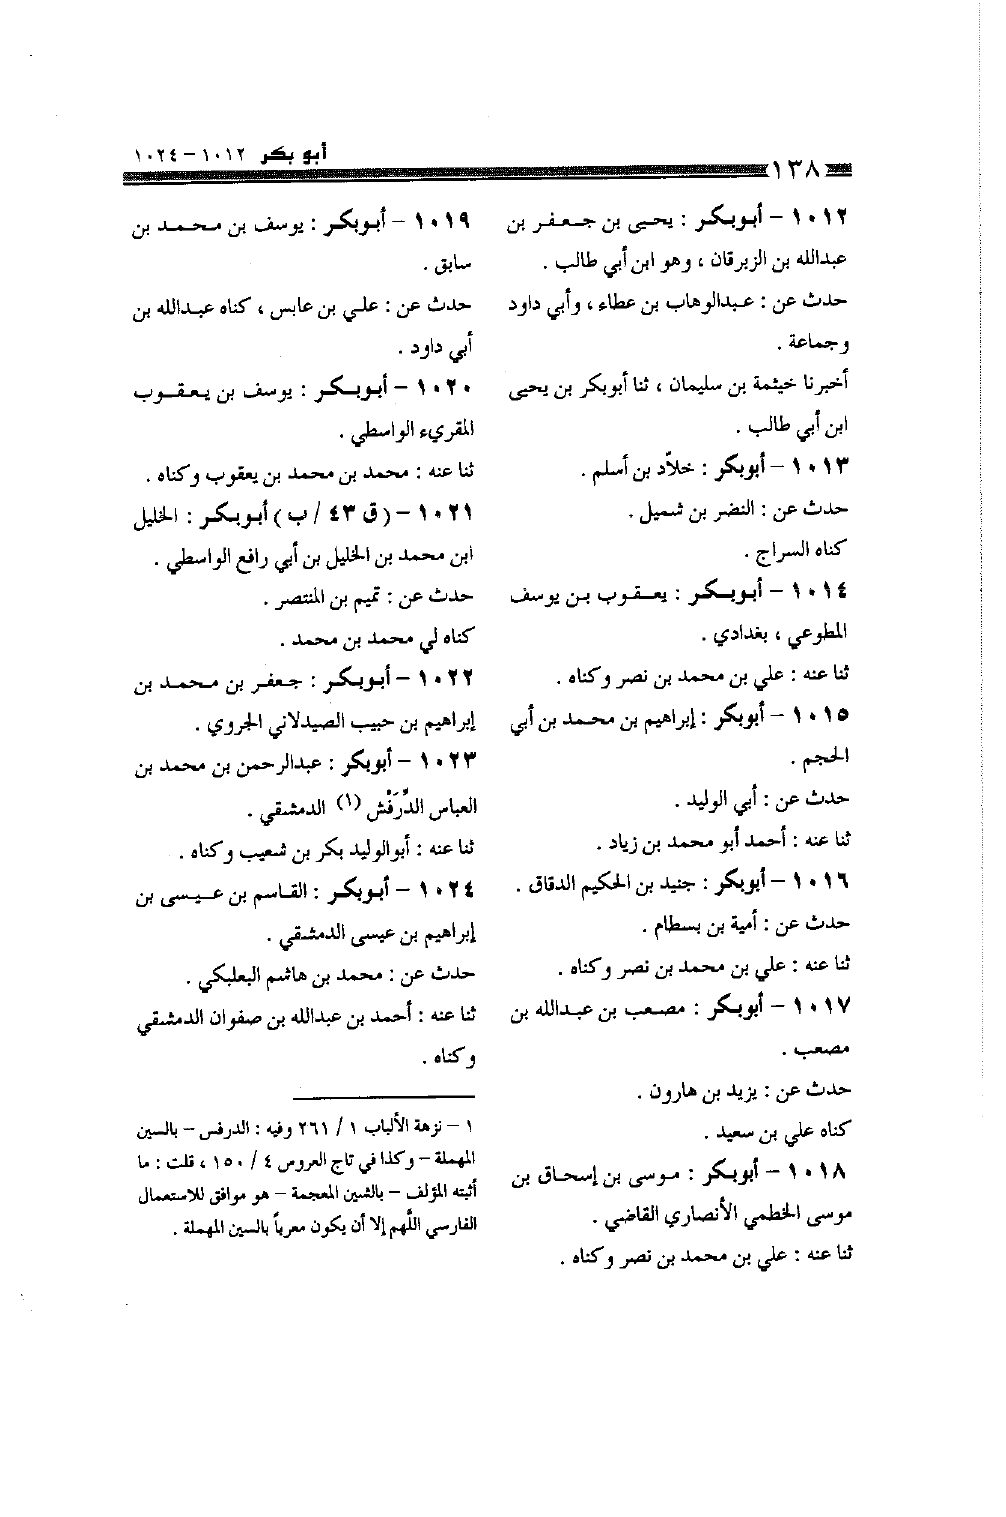 ١٣٨
أبو بكر ١٠١٢-١٠٢٤
١٠١٢ - أبوبكر : يحيى بن جعفر بن
عبدالله بن الزبرقان ، وهو ابن أبي طالب .
حدث عن : عبدالوهاب بن عطاء ، وأبي داود
وجماعة .
أخبرنا خيثمة بن سليمان ، ثنا أبوبكر بن يحيى
ابن أبي طالب .
١٠١٣ - أبوبكر : خلاّد بن أسلم .
حدث عن : النضر بن شميل .
كناه السراج .
١٠١٤ - أبوبكر : يعقوب بن يوسف
المطوعي ، بغدادي .
ثنا عنه : علي بن محمد بن نصر وكناه .
١٠١٥ - أبوبكر : إبراهيم بن محمد بن أبي
الحجم .
حدث عن : أبي الوليد .
ثنا عنه : أحمد أبو محمد بن زياد .
١٠١٦ - أبوبكر : جنيد بن الحكيم الدقاق .
حدث عن : أمية بن بسطام .
ثنا عنه : علي بن محمد بن نصر وكناه .
١٠١٧ - أبوبكر : مصعب بن عبدالله بن
مصعب .
حدث عن : يزيد بن هارون .
كناه علي بن سعيد .
١٠١٨ - أبوبكر : موسى بن إسحاق بن
موسى الخطمي الأنصاري القاضي .
ثنا عنه : علي بن محمد بن نصر وكناه .
١٠١٩ - أبوبكر : يوسف بن محمد بن
سابق .
حدث عن : علي بن عابس ، كناه عبدالله بن
أبي داود .
١٠٢٠ - أبوبكر : يوسف بن يعقوب
المقريء الواسطي .
ثنا عنه : محمد بن محمد بن يعقوب وكناه .
١٠٢١ - ( ق ٤٣ / ب ) أبوبكر : الخليل
ابن محمد بن الخليل بن أبي رافع الواسطي .
حدث عن : تميم بن المنتصر .
كناه لي محمد بن محمد .
١٠٢٢ - أبوبكر : جعفر بن محمد بن
إبراهيم بن حبيب الصيدلاني الجروي .
١٠٢٣ - أبوبكر : عبدالرحمن بن محمد بن
العباس الدِّرَفْش (١) الدمشقي .
ثنا عنه : أبوالوليد بكر بن شعيب وكناه .
١٠٢٤ - أبوبكر : القاسم بن عيسى بن
إبراهيم بن عيسى الدمشقي .
حدث عن : محمد بن هاشم البعلبكي .
ثنا عنه : أحمد بن عبدالله بن صفوان الدمشقي
وكناه .
١ - نزهة الألباب ١ / ٢٦١ وفيه : الدرفس - بالسين
المهملة - وكذا في تاج العروس ٤ / ١٥٠ ، قلت : ما
أثبته المؤلف - بالشين المعجمة - هو موافق للاستعمال
الفارسي اللَّهم إلا أن يكون معرباً بالسين المهملة .